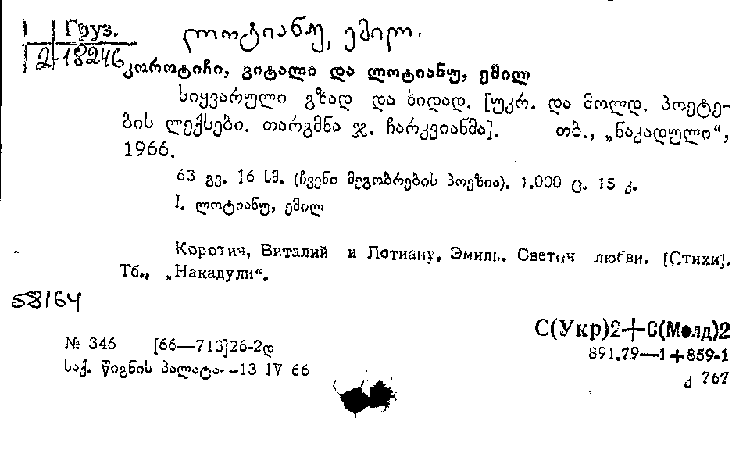 Груз.
2-18246
ლოტიანუ, ემილ.
კოროტიჩი, ვიტალი და ლოტიანუ, ემილ
სიყვარული გზად და ხიდად. [უკრ. და მოლდ. პოეტე-
ბის ლექსები. თარგმნა ჯ. ჩარკვიანმა]. თბ., „ნაკადული“,
1966.
63 გვ. 16 სმ. (ჩვენი მეგობრების პოეზია). 1.000 ც. 15 კ.
I. ლოტიანუ, ემილ
Коротич, Виталий и Лотиану, Эмиль. Светоч любви. [Стихи].
Тб., „Накадули“.
58164
С(Укр)2+С(Молд)2
№ 346 [66—713]26-2დ
891.79—1+859-1
საქ. წიგნის პალატა 13 IV 66
კ 767